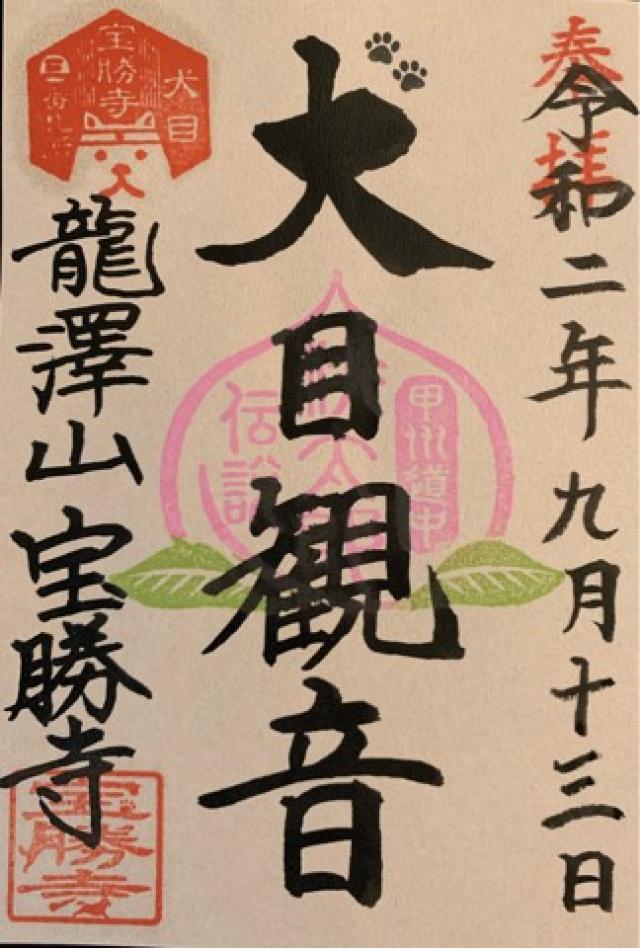 奉拝
令和二年九月十三日
犬目観音
甲州道中
伝説
龍澤山 宝勝寺
宝勝寺
犬目
宝勝寺